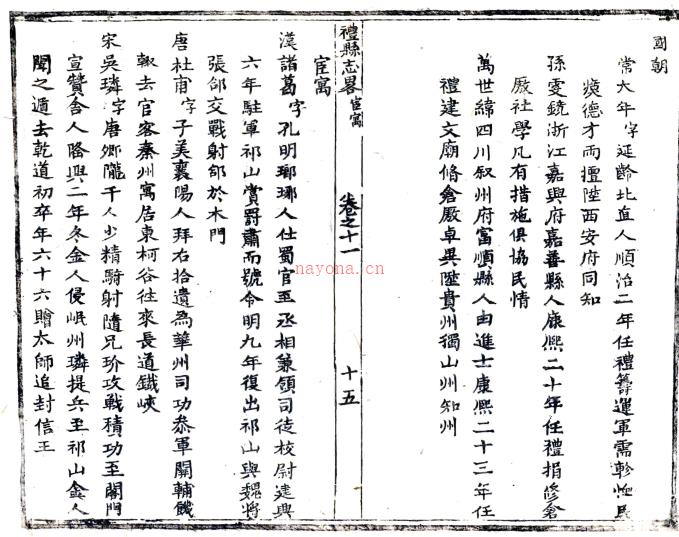 國朝
常大年字延齡北直人順治二年任禮籌運軍需軫恤民
瘼德才兩擅陞西安府同知
孫雯鏡浙江嘉興府嘉善縣人康熙二十年任禮捐修倉
廒社學凡有措施俱協民情
萬世緯四川叙州府富順縣人由進士康熙二十三年任
禮建文廟脩倉廒卓異陞貴州獨山州知州
禮縣志畧 宦寓 卷之十一 十五
宦寓
漢諸葛字孔明瑯琊人仕蜀官至丞相兼領司徒校尉建興
六年駐軍祁山賞罰肅而號令明九年復出祁山與魏將
張郃交戰射郃於木門
唐杜甫字子美襄陽人拜右拾遺為華州司功叅軍關輔饑
輒去官客秦州寓居東柯谷往來長道鐵峽
宋吳璘字唐卿隴干人少精騎射隨兄玠攻戰積功至閤門
宣贊舍人隆興二年冬金人侵岷州璘提兵至祁山金人
聞之遁去乾道初卒年六十六贈太師追封信王
nayona.cn